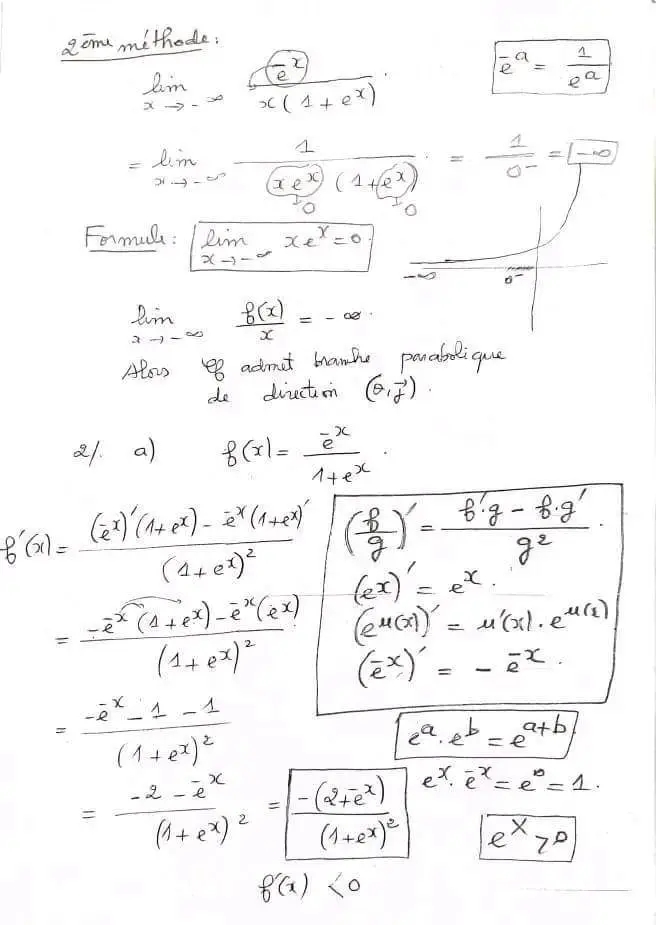 2ème méthode:
lim x → -∞ e^-x / x(1+e^x)
e^-a = 1/e^a
= lim x → -∞ 1 / (x e^x)(1+e^x) = 1/0^- = -∞
↓0 ↓0
Formule: lim x → -∞ x e^x = 0.
-∞ 0^-
lim x → -∞ f(x)/x = -∞.
Alors Cf admet branche parabolique
de direction (O,j⃗).
2/. a) f(x) = e^-x / 1+e^x .
f'(x) = (e^-x)'(1+e^x) - e^-x(1+e^x)' / (1+e^x)^2
(f/g)' = f'g - f.g' / g^2 .
(e^x)' = e^x.
= -e^-x(1+e^x) - e^-x(e^x) / (1+e^x)^2
(e^u(x))' = u'(x).e^u(x)
(e^-x)' = -e^-x.
= -e^-x - 1 - 1 / (1+e^x)^2
e^a.e^b = e^a+b
= -2 - e^-x / (1+e^x)^2 = -(2+e^-x) / (1+e^x)^2
e^x.e^-x = e^0 = 1.
e^x > 0
f'(x) < 0